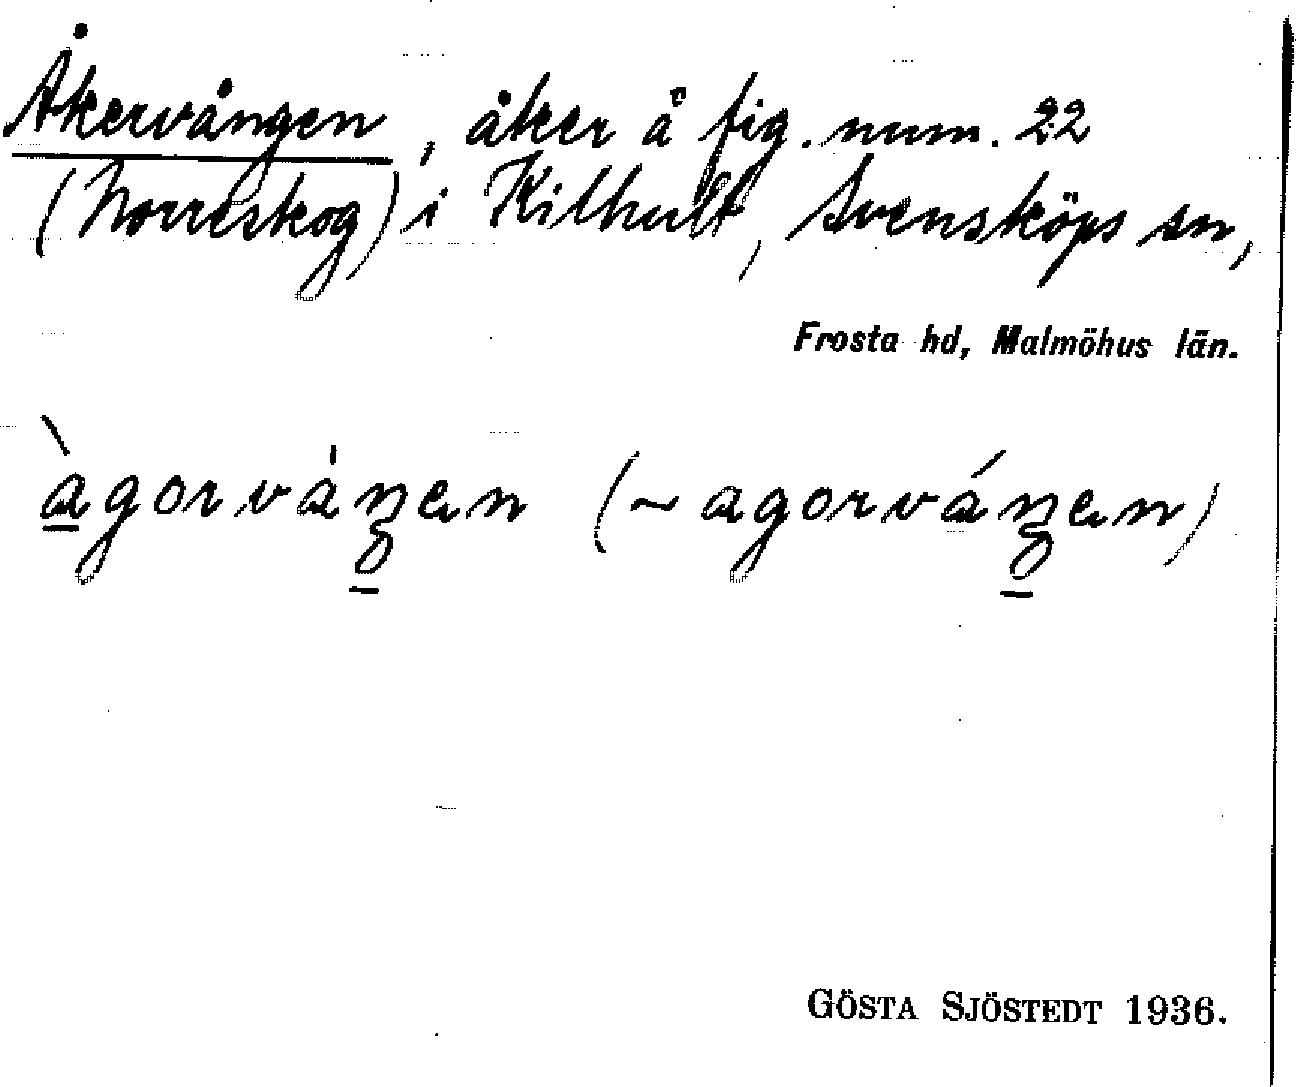 Åkervången, åker å fig. num. 22
(Norreskog) i Kilhult, Svensköps sn,
Frosta hd, Malmöhus län.
àgorváŋen (~ agorváŋen)
GÖSTA SJÖSTEDT 1936.